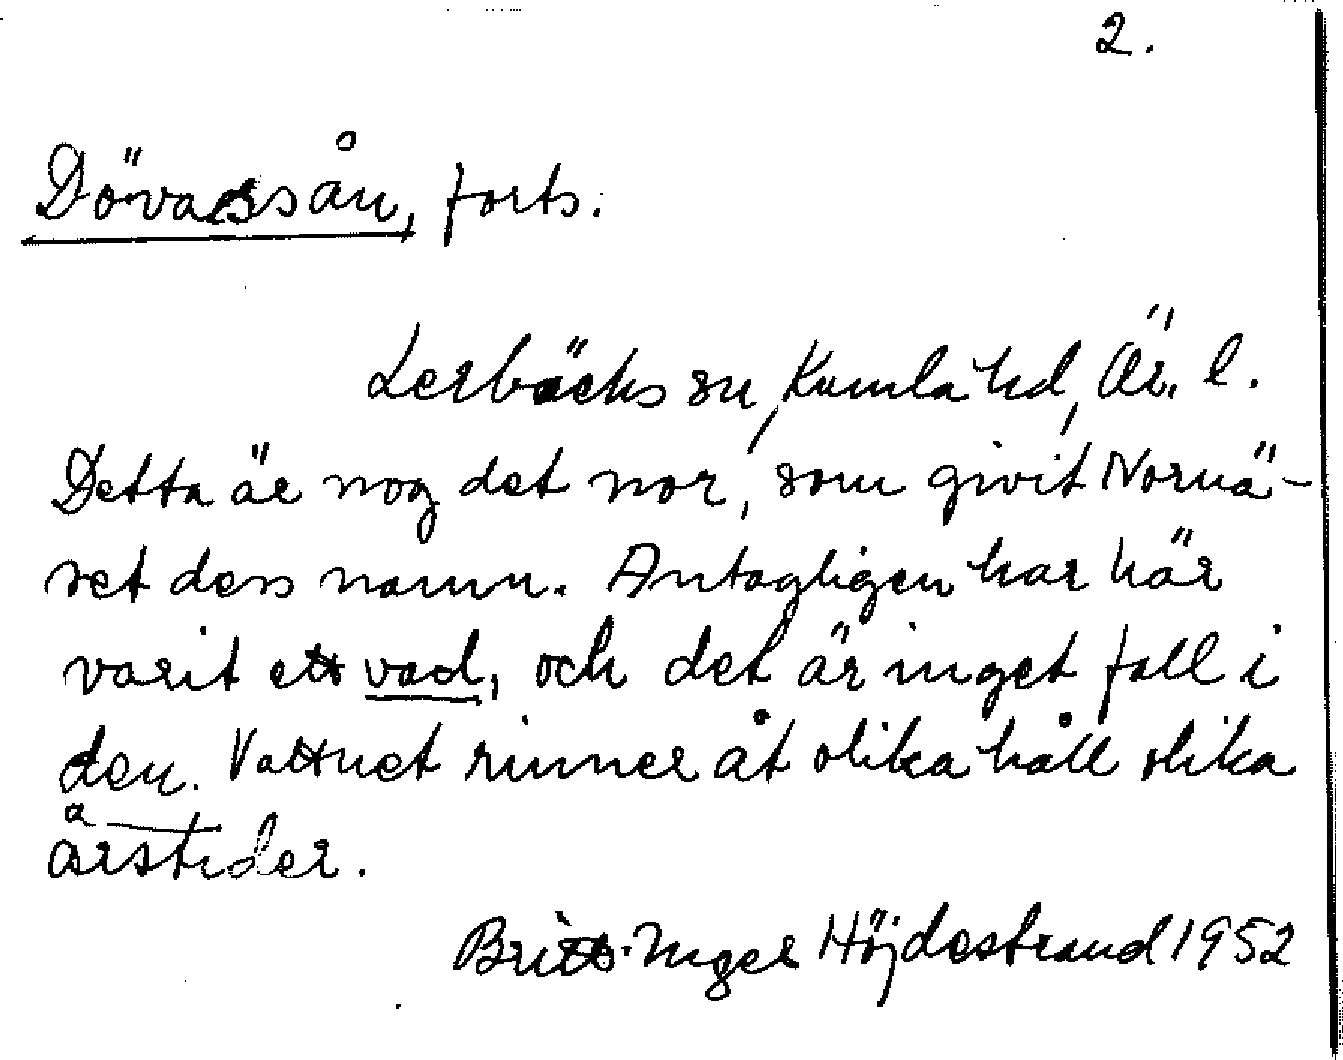 2.
Dövassån, forts.
Lerbäcks sn, Kumla hd, Ör. l.
Detta är nog det nor, som givit Nornä-
set dess namn. Antagligen har här
varit ett vad, och det är inget fall i
den. Vattnet rinner åt olika håll olika
årstider.
Britt-Inger Höjdestrand 1952